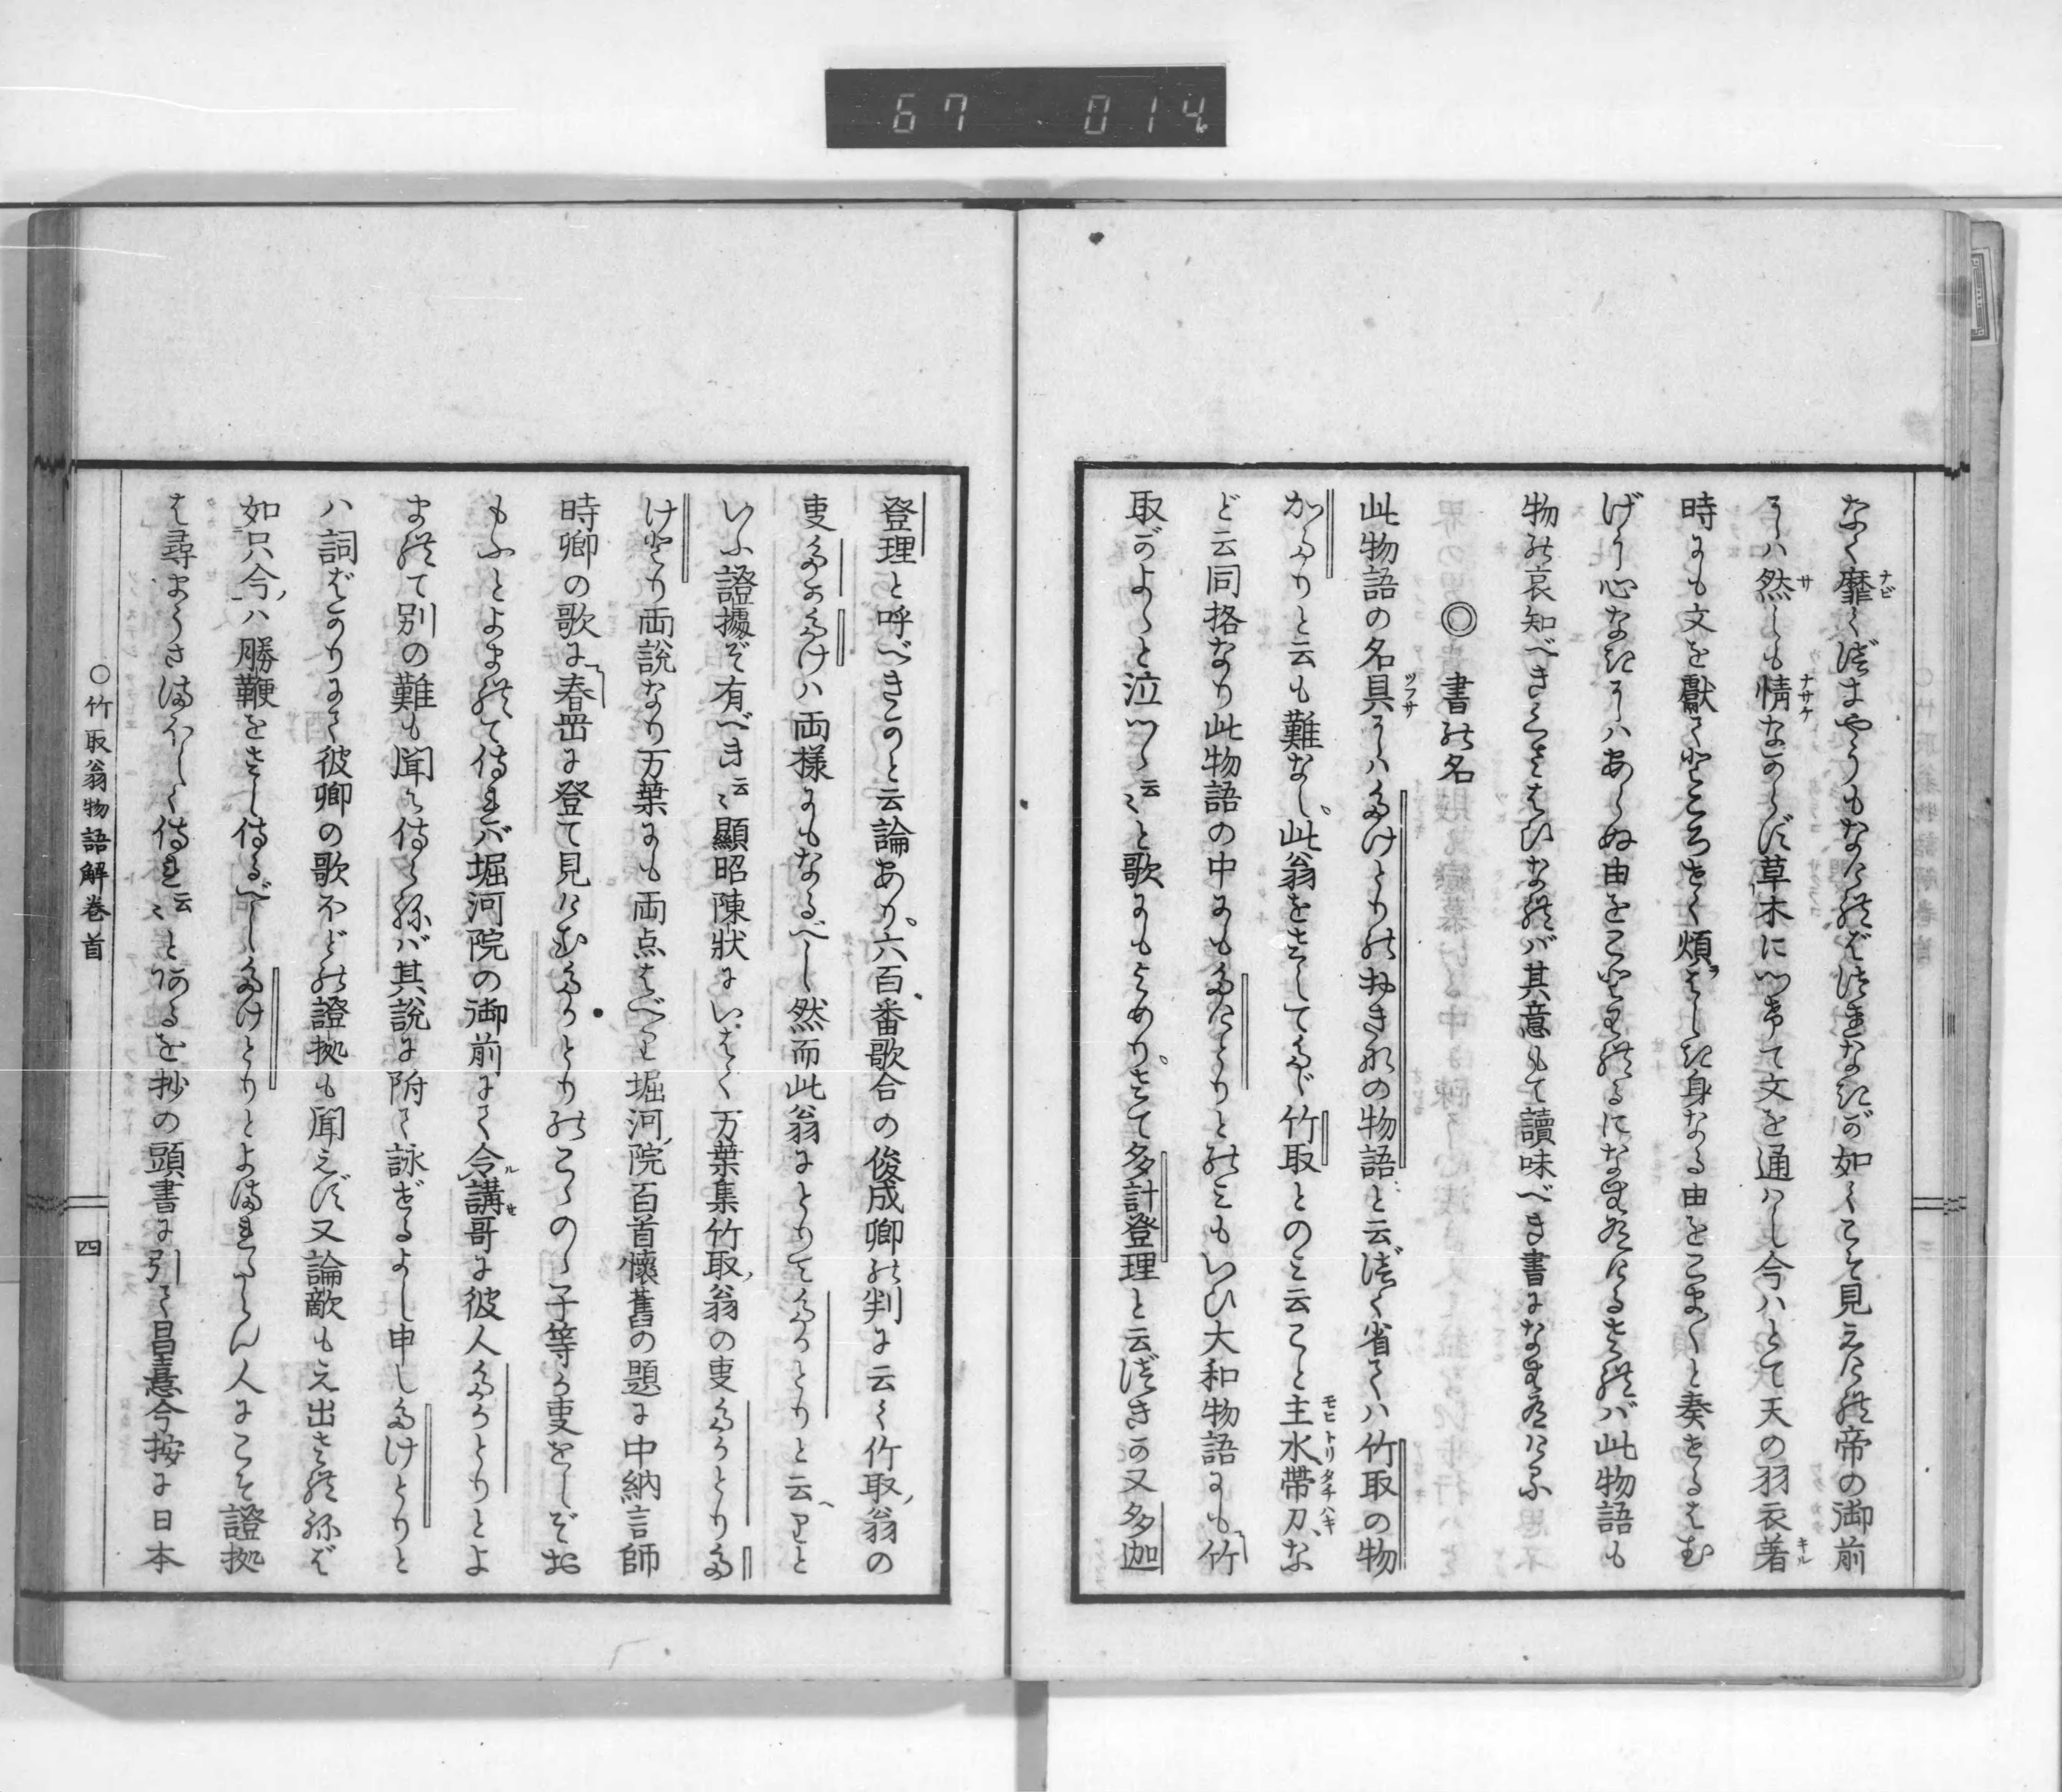 67 014
なく靡くべきやうもなければつきなきが如くこそ見えたれ帝の御前
にハ然しも情なからず草木につけて文を通はし今ハとて天の羽衣着
時にも文を獻てところせく煩はしき身なる由をこまごまと奏せるはむ
げに心なきにハあらぬ由をことわれるになむありけるされバ此物語も
物の哀知べきくさはひなれバ其意もて讀味べき書になむありけらふ
◎書の名
此物語の名具にハたけとりのおきなの物語と云べく省てハ竹取の物
がたりと云も難なし此翁をさしてたゞ竹取とのミ云こと主水帶刀な
ど云同格なり此物語の中にもたけとりとのミもいひ大和物語にも竹
取がよゝと泣つゝ云〻と歌にもよめりさて多計登理と云べきか又多迦
登理と呼べきかと云論あり六百番歌合の俊成卿の判に云く竹取翁の
叓たかたけハ両様にもなるべし然而此翁にとりてたかとりと云へりと
いふ證據ぞ有べき云〻顯昭陳狀にいはく万葉集竹取翁の叓たかとりた
けとり両説なり万葉にも両点はべり堀河院百首懷舊の題に中納言師
時卿の歌に春岡に登て見けむたかとりのこゝの子等か叓をしぞお
もふとよまれて侍れバ堀河院の御前にて令講哥に彼人たかとりとよ
まれて別の難も聞え侍らねバ其説に附て詠ぜるよし申したけとりと
ハ詞ばかりにて彼卿の歌ほどの證拠も聞えず又論敵もえ出されねば
如只今ハ勝鞭をさし侍るべしたけとりとよまれたらん人にこそ證拠
は尋まうさまほしく侍れ云〻とあるを抄の頭書に引て昌憙今按に日本
○竹取翁物語解卷首
四